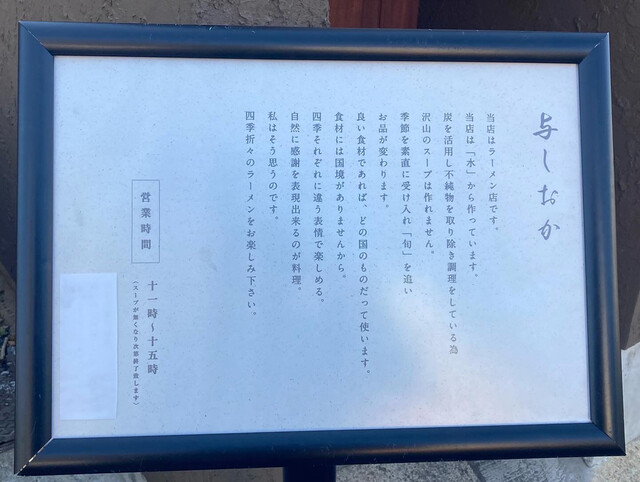 与しおか
当店はラーメン店です。
当店は「水」から作っています。
炭を活用し不純物を取り除き調理をしている為
沢山のスープは作れません。
季節を素直に受け入れ「旬」を追い
お品が変わります。
良い食材であれば、どの国のものだって使います。
食材には国境がありませんから。
四季それぞれに違う表情で楽しめる。
自然に感謝を表現出来るのが料理。
私はそう思うのです。
四季折々のラーメンをお楽しみ下さい。
営業時間
十一時〜十五時
（スープが無くなり次第終了致します）